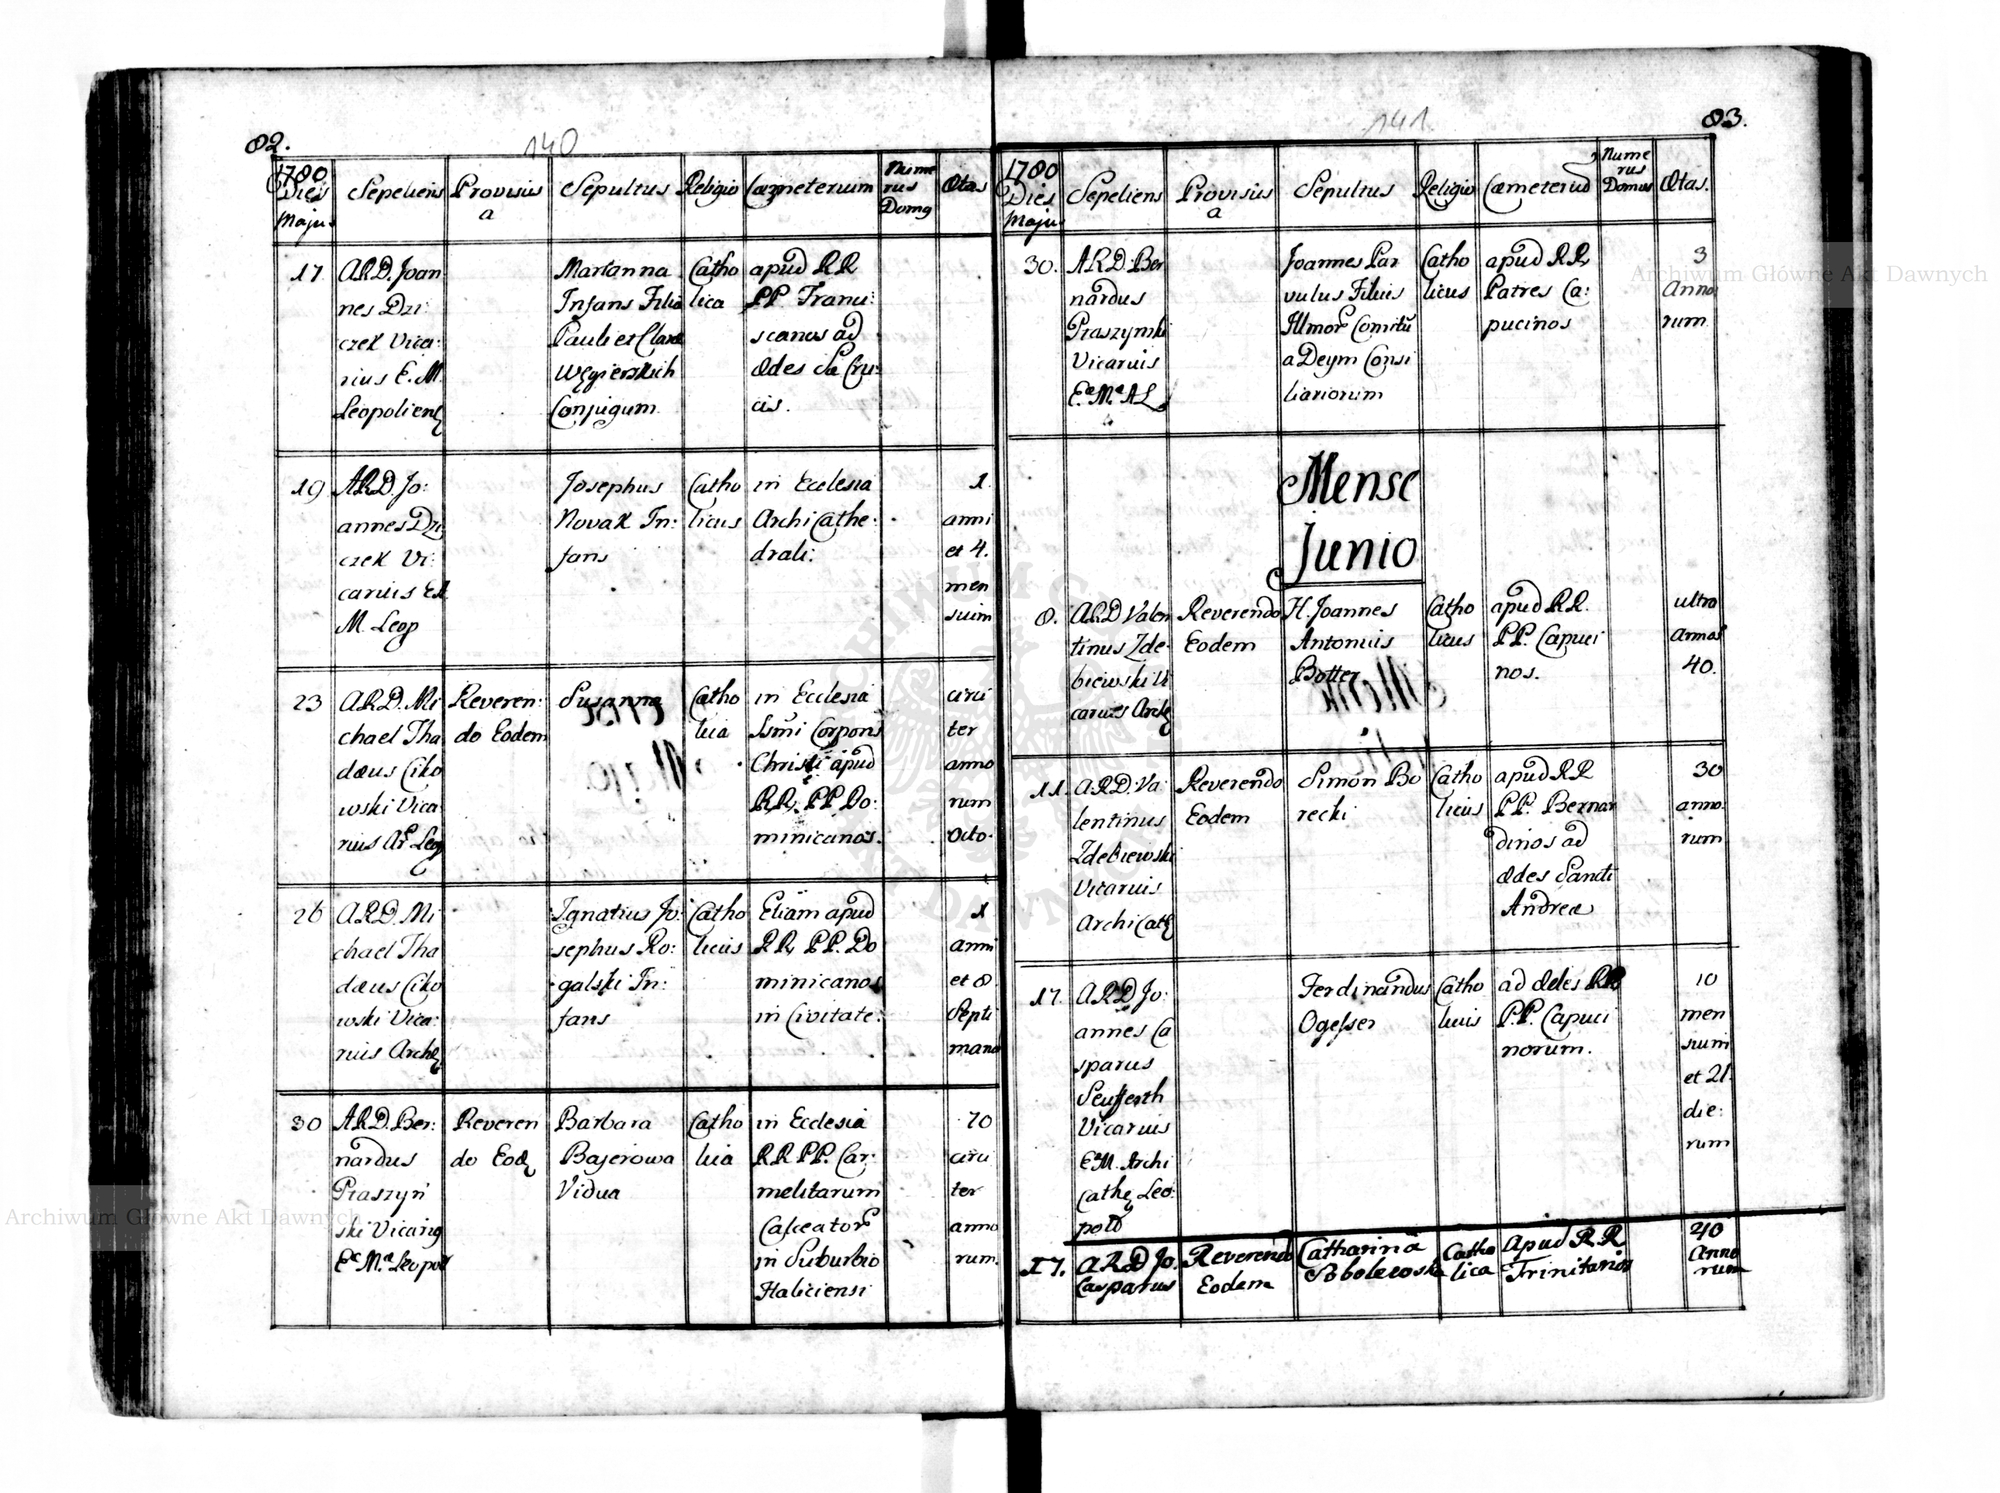 82.
140
1780
Dies
Maju.
Sepeliens
Provisus
a
Sepultus
Religio
Cæmeterium
Nume
rus
Domq
Ætas
17
A.R.D. Joan
nes Dzi:
czek Vica:
rius E. M.
Leopolienę
Marianna
Infans Filia
Pauli et Claræ
Węgierskich
Conjugum
Catho
lica
apud RR
PP Franci:
scanos ad
Ædes Sæ Cru:
cis.
19
A.R.D. Jo:
annes Dzi
czek Vi:
carius Ex
M. Leop
Josephus
Novak In:
fans
Catho
licus
in Ecclesia
Archi Cathe:
drali:
1.
anni
et 4.
men
sium
23
A.R.D. Mi
chael Tha
dæus Ciko
wski Vica
rius Leop
Reveren:
do Eodem
Susanna
Catho
lica
in Ecclesia
Ssmi Corporis
Christi apud
RR, PP Do:
minicanos.
circi
ter
anno
rum
octo.
26
A.R.D. Mi
chael Tha
dæus Ciko
wski Vica:
rius Archę
Ignatius Jo:
sephus Ro:
galski In:
fans
Catho
licus
Etiam apud
RR, PP. Do
minicanos
in Civitate:
1
anni
et 8.
Septi
mana
30
A.R.D. Ber:
nardus
Praszyń
ski Vicariq
Eæ Mæ Leopol
Reveren
do Eodę
Barbara
Bajerowa
Vidua
Catho
lica
in Ecclesia
RR PP. Car:
melitarum
Calceator
in Suburbio
Haliciensi
70
circi
ter
anno
rum.
83.
141
1780
Dies
Maju
Sepeliens
Provisus
a
Sepultus
Religio
Cæmeteriū
Nume
rus
Domus
Ætas.
30.
A.R.D. Ber
nardus
Praszynski
Vicarius
Eæ Mæ AL
Joannes Par
vulus Filius
Illmor Comitū
a Deym Consi
liariorum
Catho
licus
apud RR,
Patres Ca:
pucinos
3
Anno
rum
Mense
Junio
8.
A.R.D Valen
tinus Zde
biewski Vi
carius Archę
Reverendo
Eodem
H. Joannes
Antonius
Botter
Catho
licus
apud RR.
PP. Capuci
nos.
ultra
annos
40.
11.
A.R.D. Va:
lentinus
Zdebiewski
Vicarius
Archi Cath
Reverendo
Eodem
Simon Bo
recki
Catho
licus
apud RR
PP. Bernar
dinos ad
ædes Sancti
Andreæ
30
anno.
rum
17.
A.R.D Jo:
annes Ca
sparus
Seufferth
Vicarius
Eæ M. Archi
Cathę Leo:
pold
Ferdinandus
Ogesser
Catho
licus
ad ædes RR
P.P. Capuci
norum.
10
men
sium
et 21.
die:
rum
17.
A R D Jo.
Casparus
Reverendo
Eodem
Catharina
Sobolewska
Catho
lica
Apud RR
Trinitarios
40
Anno
rum
Archiwum Główne Akt Dawnych
Archiwum Główne Akt Dawnych